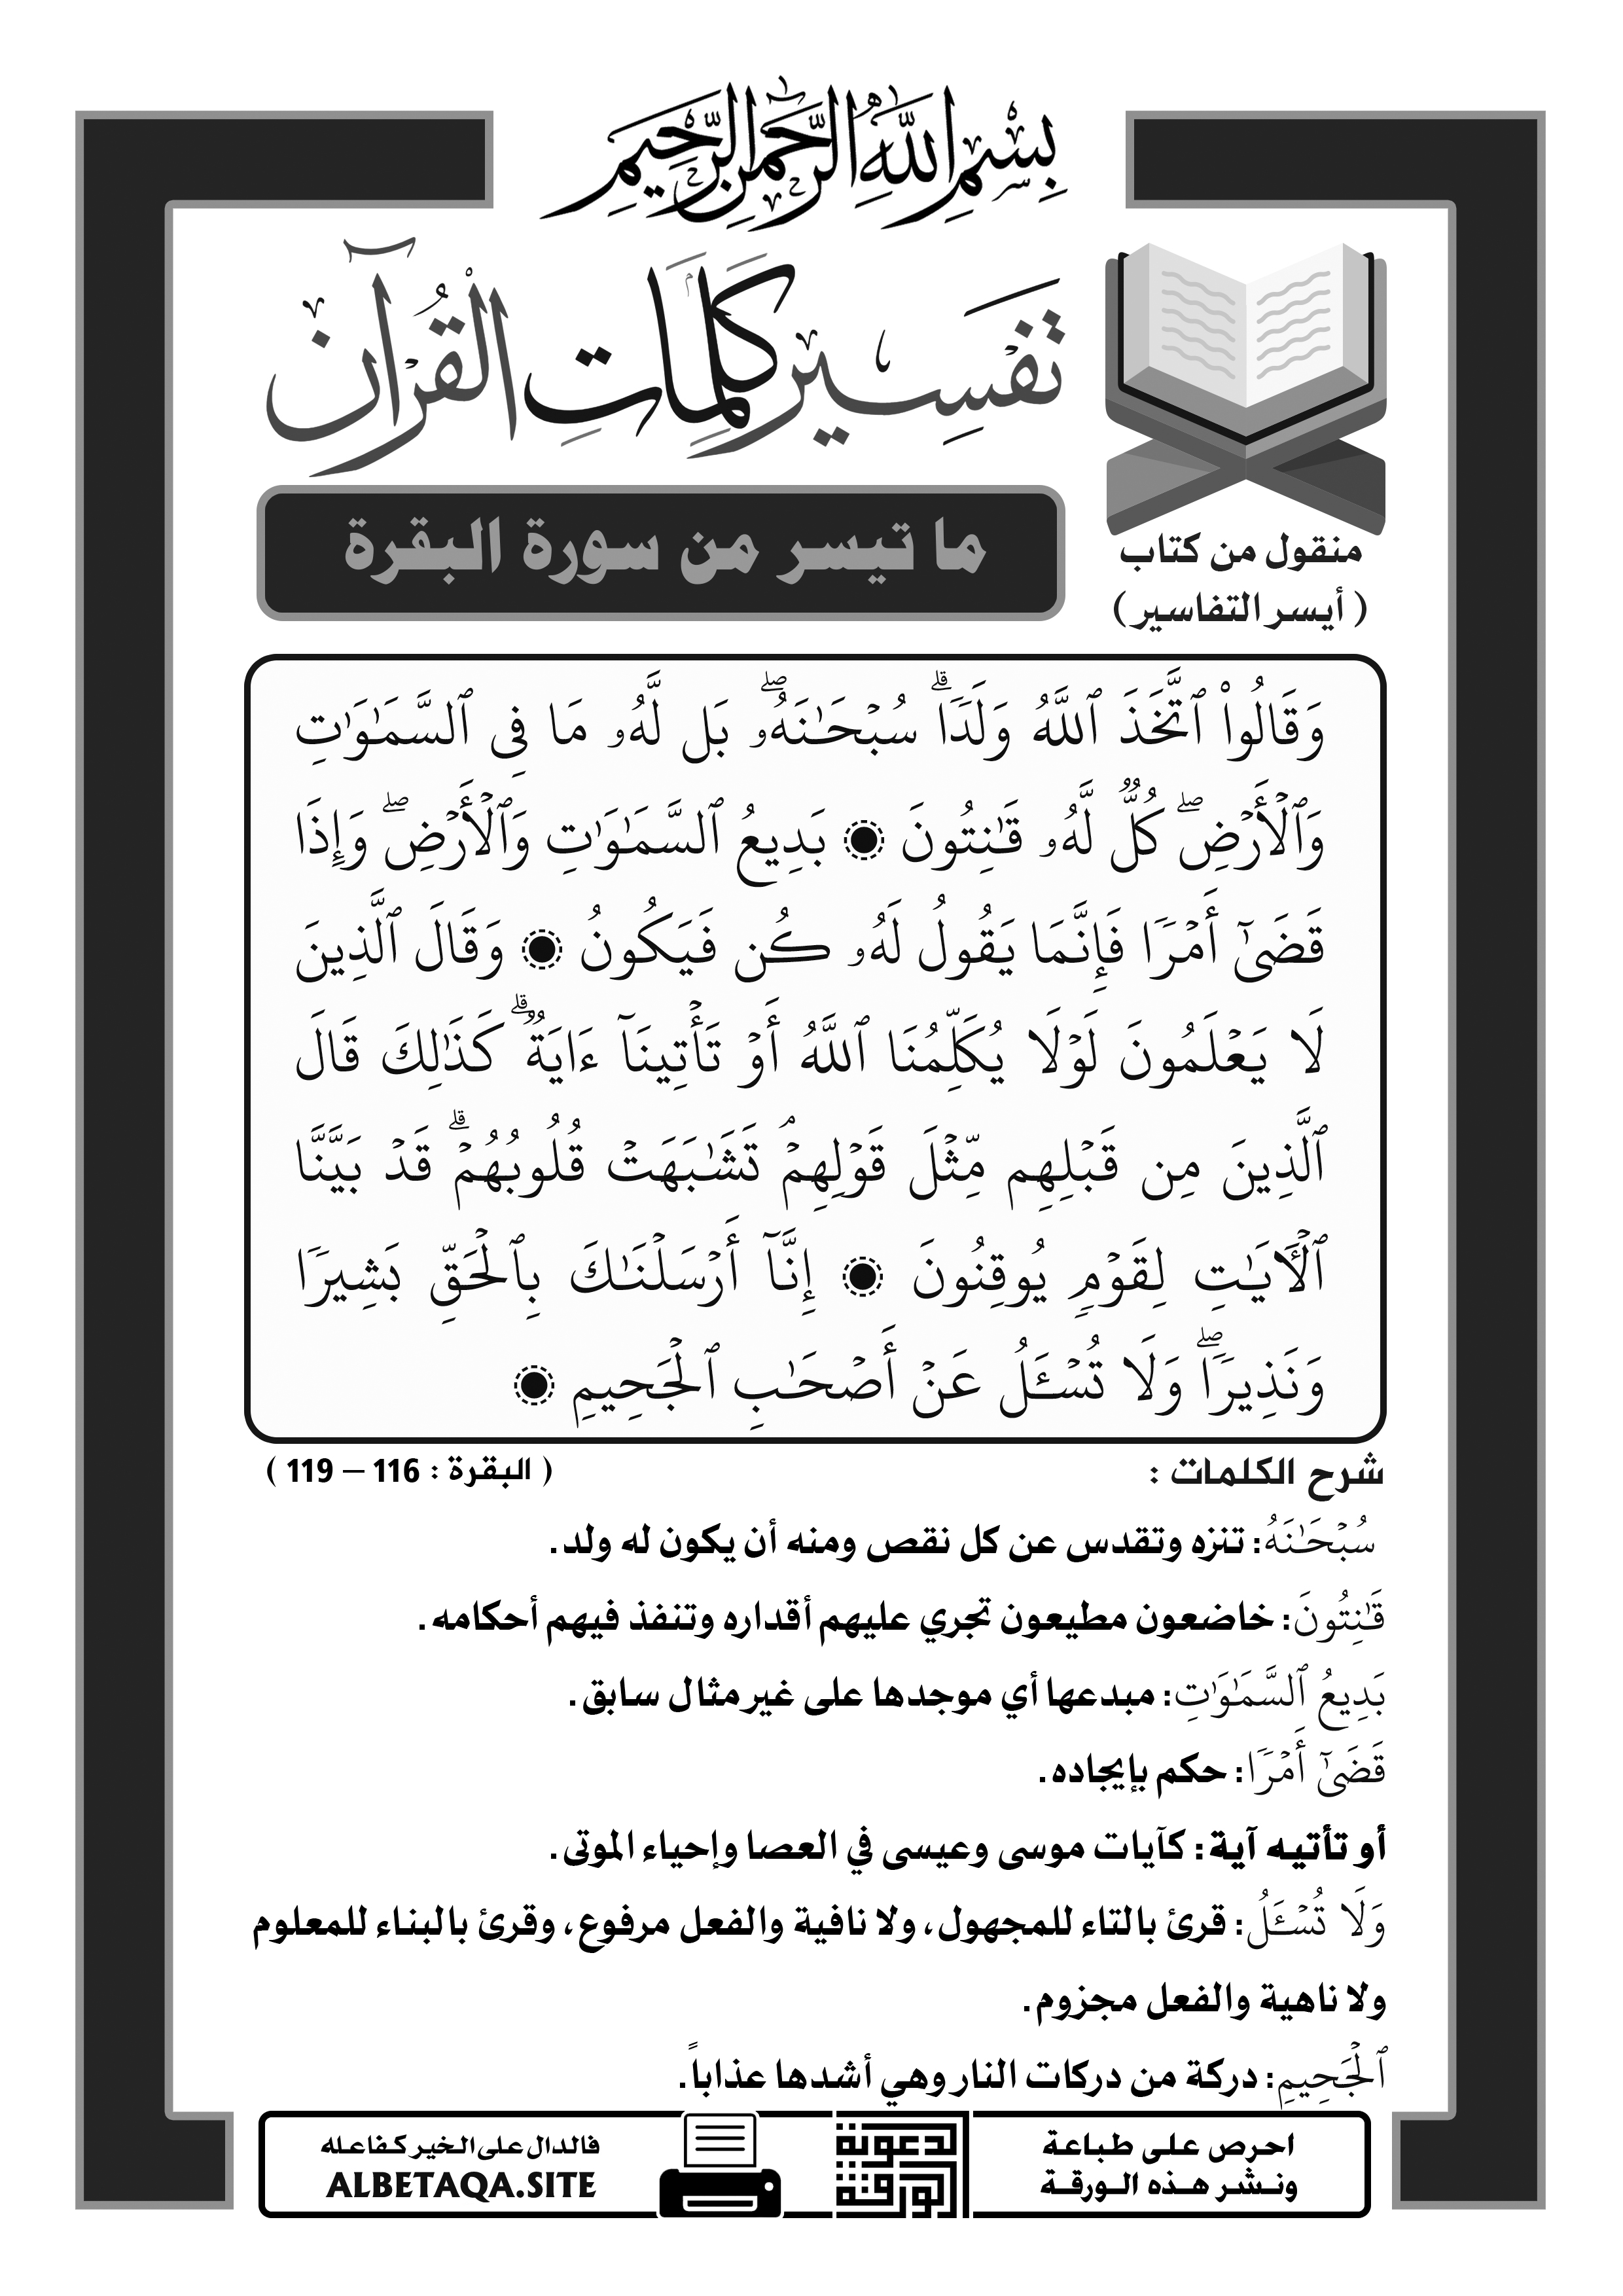 بِسْمِ اللَّهِ الرَّحْمَٰنِ الرَّحِيمِ
تَفْسِير كَلِمَات القُرْآن
منقول من كتاب
( أيسر التفاسير )
ما تيسر من سورة البقرة
وَقَالُوا۟ ٱتَّخَذَ ٱللَّهُ وَلَدًۭا ۗ سُبْحَـٰنَهُۥ ۖ بَل لَّهُۥ مَا فِى ٱلسَّمَـٰوَٰتِ
وَٱلْأَرْضِ ۖ كُلٌّۭ لَّهُۥ قَـٰنِتُونَ ۝ بَدِيعُ ٱلسَّمَـٰوَٰتِ وَٱلْأَرْضِ ۖ وَإِذَا
قَضَىٰٓ أَمْرًۭا فَإِنَّمَا يَقُولُ لَهُۥ كُن فَيَكُونُ ۝ وَقَالَ ٱلَّذِينَ
لَا يَعْلَمُونَ لَوْلَا يُكَلِّمُنَا ٱللَّهُ أَوْ تَأْتِينَآ ءَايَةٌۭ ۗ كَذَٰلِكَ قَالَ
ٱلَّذِينَ مِن قَبْلِهِم مِّثْلَ قَوْلِهِمْ ۘ تَشَـٰبَهَتْ قُلُوبُهُمْ ۗ قَدْ بَيَّنَّا
ٱلْـَٔايَـٰتِ لِقَوْمٍۢ يُوقِنُونَ ۝ إِنَّآ أَرْسَلْنَـٰكَ بِٱلْحَقِّ بَشِيرًۭا
وَنَذِيرًۭا ۖ وَلَا تُسْـَٔلُ عَنْ أَصْحَـٰبِ ٱلْجَحِيمِ ۝
شرح الكلمات : ( البقرة : 116 – 119 )
سُبْحَـٰنَهُ: تنزه وتقدس عن كل نقص ومنه أن يكون له ولد.
قَـٰنِتُونَ: خاضعون مطيعون تجري عليهم أقداره وتنفذ فيهم أحكامه.
بَدِيعُ ٱلسَّمَـٰوَٰتِ: مبدعها أي موجدها على غير مثال سابق.
قَضَىٰٓ أَمْرًۭا: حكم بإيجاده.
أو تأتيه آية: كآيات موسى وعيسى في العصا وإحياء الموتى.
وَلَا تُسْـَٔلُ: قرئ بالتاء للمجهول، ولا نافية والفعل مرفوع، وقرئ بالبناء للمعلوم
ولا ناهية والفعل مجزوم.
ٱلْجَحِيمِ: دركة من دركات النار وهي أشدها عذاباً.
احرص على طباعة
ونشر هذه الورقة
فالدال على الخير كفاعله
ALBETAQA.SITE